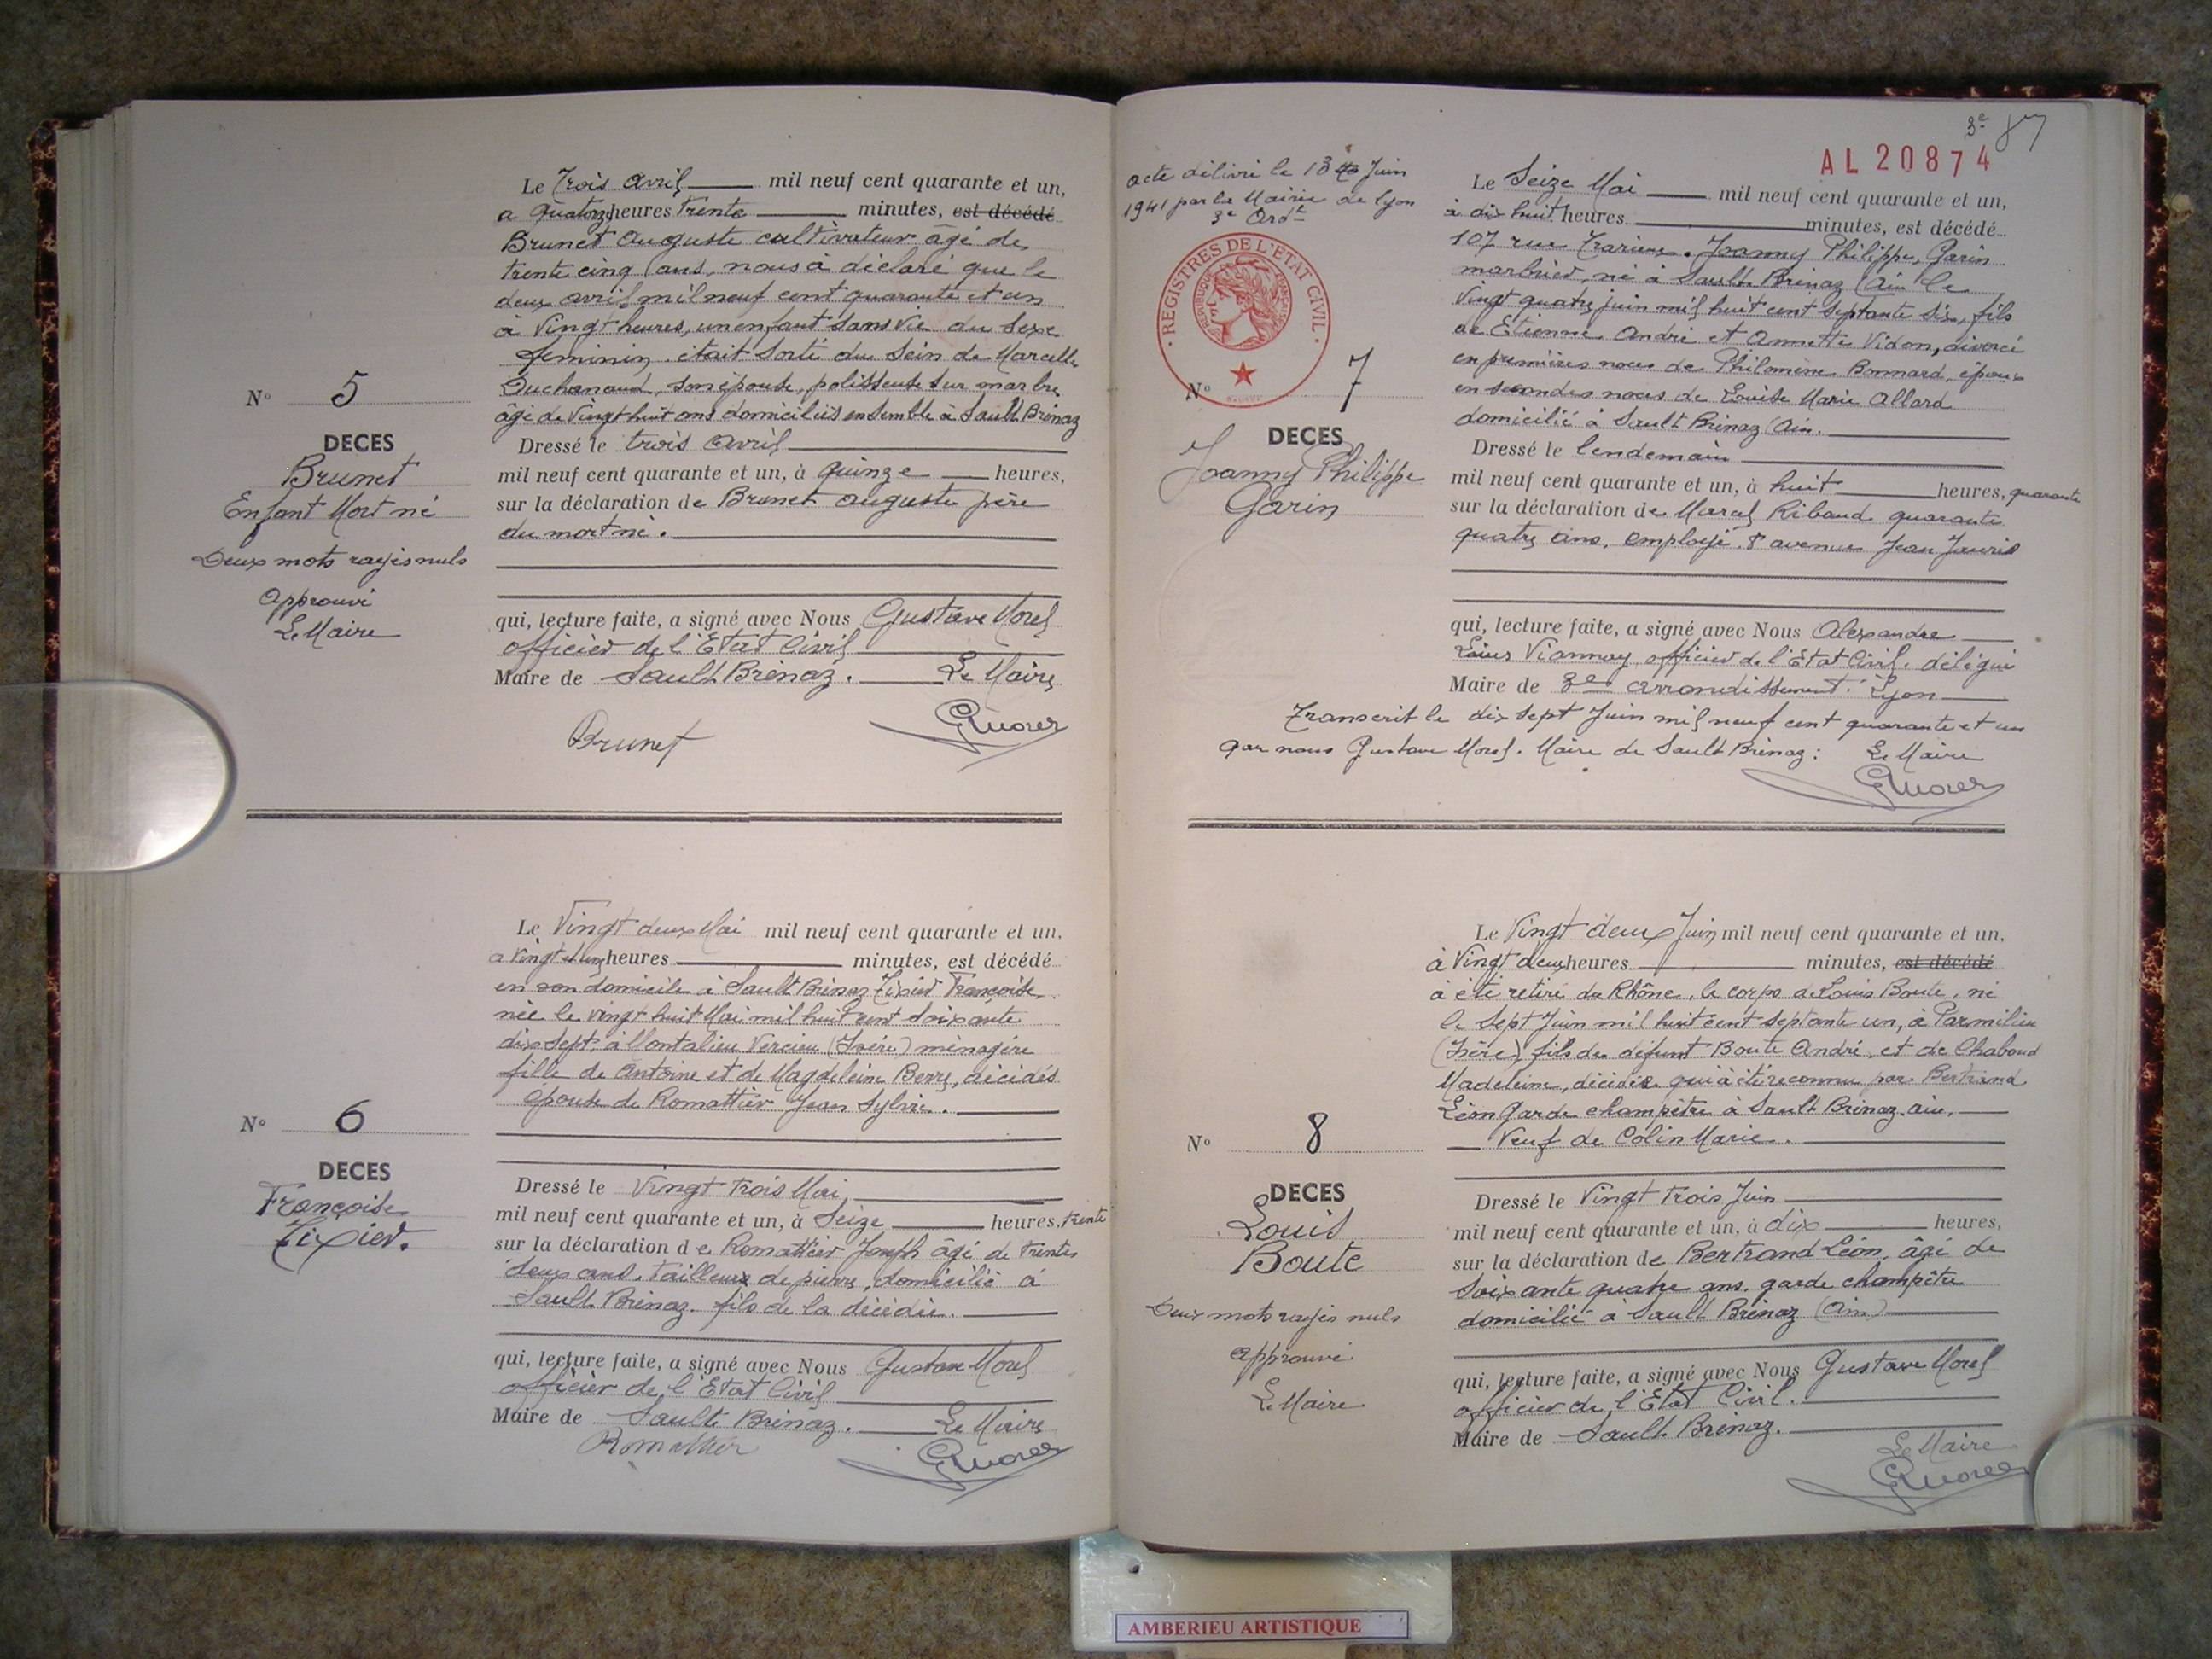 Le Trois Avril mil neuf cent quarante et un,
a Quatorze heures Trente minutes, est décédé
Brunet Auguste cultivateur âgé de
trente cinq ans, nous à déclaré que le
deux avril mil neuf cent quarante et un
à Vingt heures, un enfant sans vie du sexe
féminin, était sorti du sein de Marcelle
Duchanaud, son épouse, polisseuse sur marbre
agé de Vingt huit ans domiciliés ensemble à Sault Brénaz
Nº 5
DECES
Brunet
Enfant Mort né
Deux mots rayés nuls
Approuvé
Le Maire
Dressé le trois Avril
mil neuf cent quarante et un, à quinze heures,
sur la déclaration de Brunet Auguste père
du mort né.
qui, lecture faite, a signé avec Nous Gustave Morel
officier de l'Etat Civil
Maire de Sault Brénaz. Le Maire
Brunet
GMorel
Le Vingt deux Mai mil neuf cent quarante et un,
a Vingt et une heures minutes, est décédé
en son domicile à Sault Brénaz Tixier Françoise,
née le vingt huit Mai mil huit cent soixante
dix sept, à Montalieu Vercieu (Isère) ménagère
fille de Antoine et de Magdeleine Berry, décédés
épouse de Romattier Jean Sylvie.
Nº 6
DECES
Françoise
Tixier.
Dressé le Vingt trois Mai,
mil neuf cent quarante et un, à Seize heures, trente
sur la déclaration de Romattier Joseph âgé de Trente
deux ans, tailleur de pierre, domicilié à
Sault Brénaz. fils de la décédée.
qui, lecture faite, a signé avec Nous Gustave Morel
officier de l'Etat Civil
Maire de Sault Brénaz. Le Maire
Romattier
GMorel
3e 87
AL20874
acte délivré le 13 Juin
1941 par la Mairie de Lyon
3e Ardt
REGISTRES DE L'ETAT CIVIL
Le Seize Mai mil neuf cent quarante et un,
à dix huit heures minutes, est décédé
107 rue Trarieux. Joanny Philippe, Garin
marbrier, né à Sault Brénaz (Ain le
Vingt quatre juin mil huit cent septante six, fils
de Etienne André et Annette Vidon, divorcé
en premières noces de Philomène Bonnard, époux
en secondes noces de Louise Marie Allard
domicilié à Sault Brénaz (Ain.
Nº 7
DECES
Joanny Philippe
Garin
Dressé le lendemain
mil neuf cent quarante et un, à huit heures, quarante
sur la déclaration de Marcel Ribaud quarante
quatre ans, employé, 8 avenue Jean Jaurès
qui, lecture faite, a signé avec Nous Alexandre
Louis Viannay officier de l'Etat Civil. délégué
Maire de 3e arrondissement. Lyon
Transcrit le dix sept Juin mil neuf cent quarante et un
par nous Gustave Morel. Maire de Sault Brénaz: Le Maire
GMorel
Le Vingt deux Juin mil neuf cent quarante et un,
à Vingt deux heures minutes, est décédé
à été retiré du Rhône, le corps de Louis Boute, né
le Sept Juin mil huit cent septante un, à Parmilieu
(Isère), fils de défunt Boute André, et de Chaboud
Madeleine, décédée qui à été reconnu par Bertrand
Léon garde champêtre à Sault Brénaz, ain.
Veuf de Colin Marie.
Nº 8
DECES
Louis
Boute
Deux mots rayés nuls
Approuvé
Le Maire
Dressé le Vingt trois Juin
mil neuf cent quarante et un, à dix heures,
sur la déclaration de Bertrand Léon, âgé de
Soixante quatre ans. garde champêtre
domicilié à Sault Brénaz (Ain)
qui, lecture faite, a signé avec Nous Gustave Morel
officier de l'Etat Civil.
Maire de Sault Brénaz.
Le Maire
GMorel
AMBERIEU ARTISTIQUE